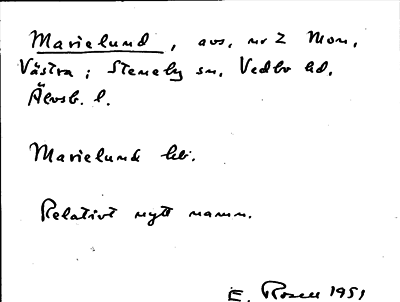 Marielund, avs. nr 2 Mon,
Västra; Steneby sn, Vedbo hd,
Älvsb. l.
Marielund lht.
Relativt nytt namn.
E. Rosell 1951